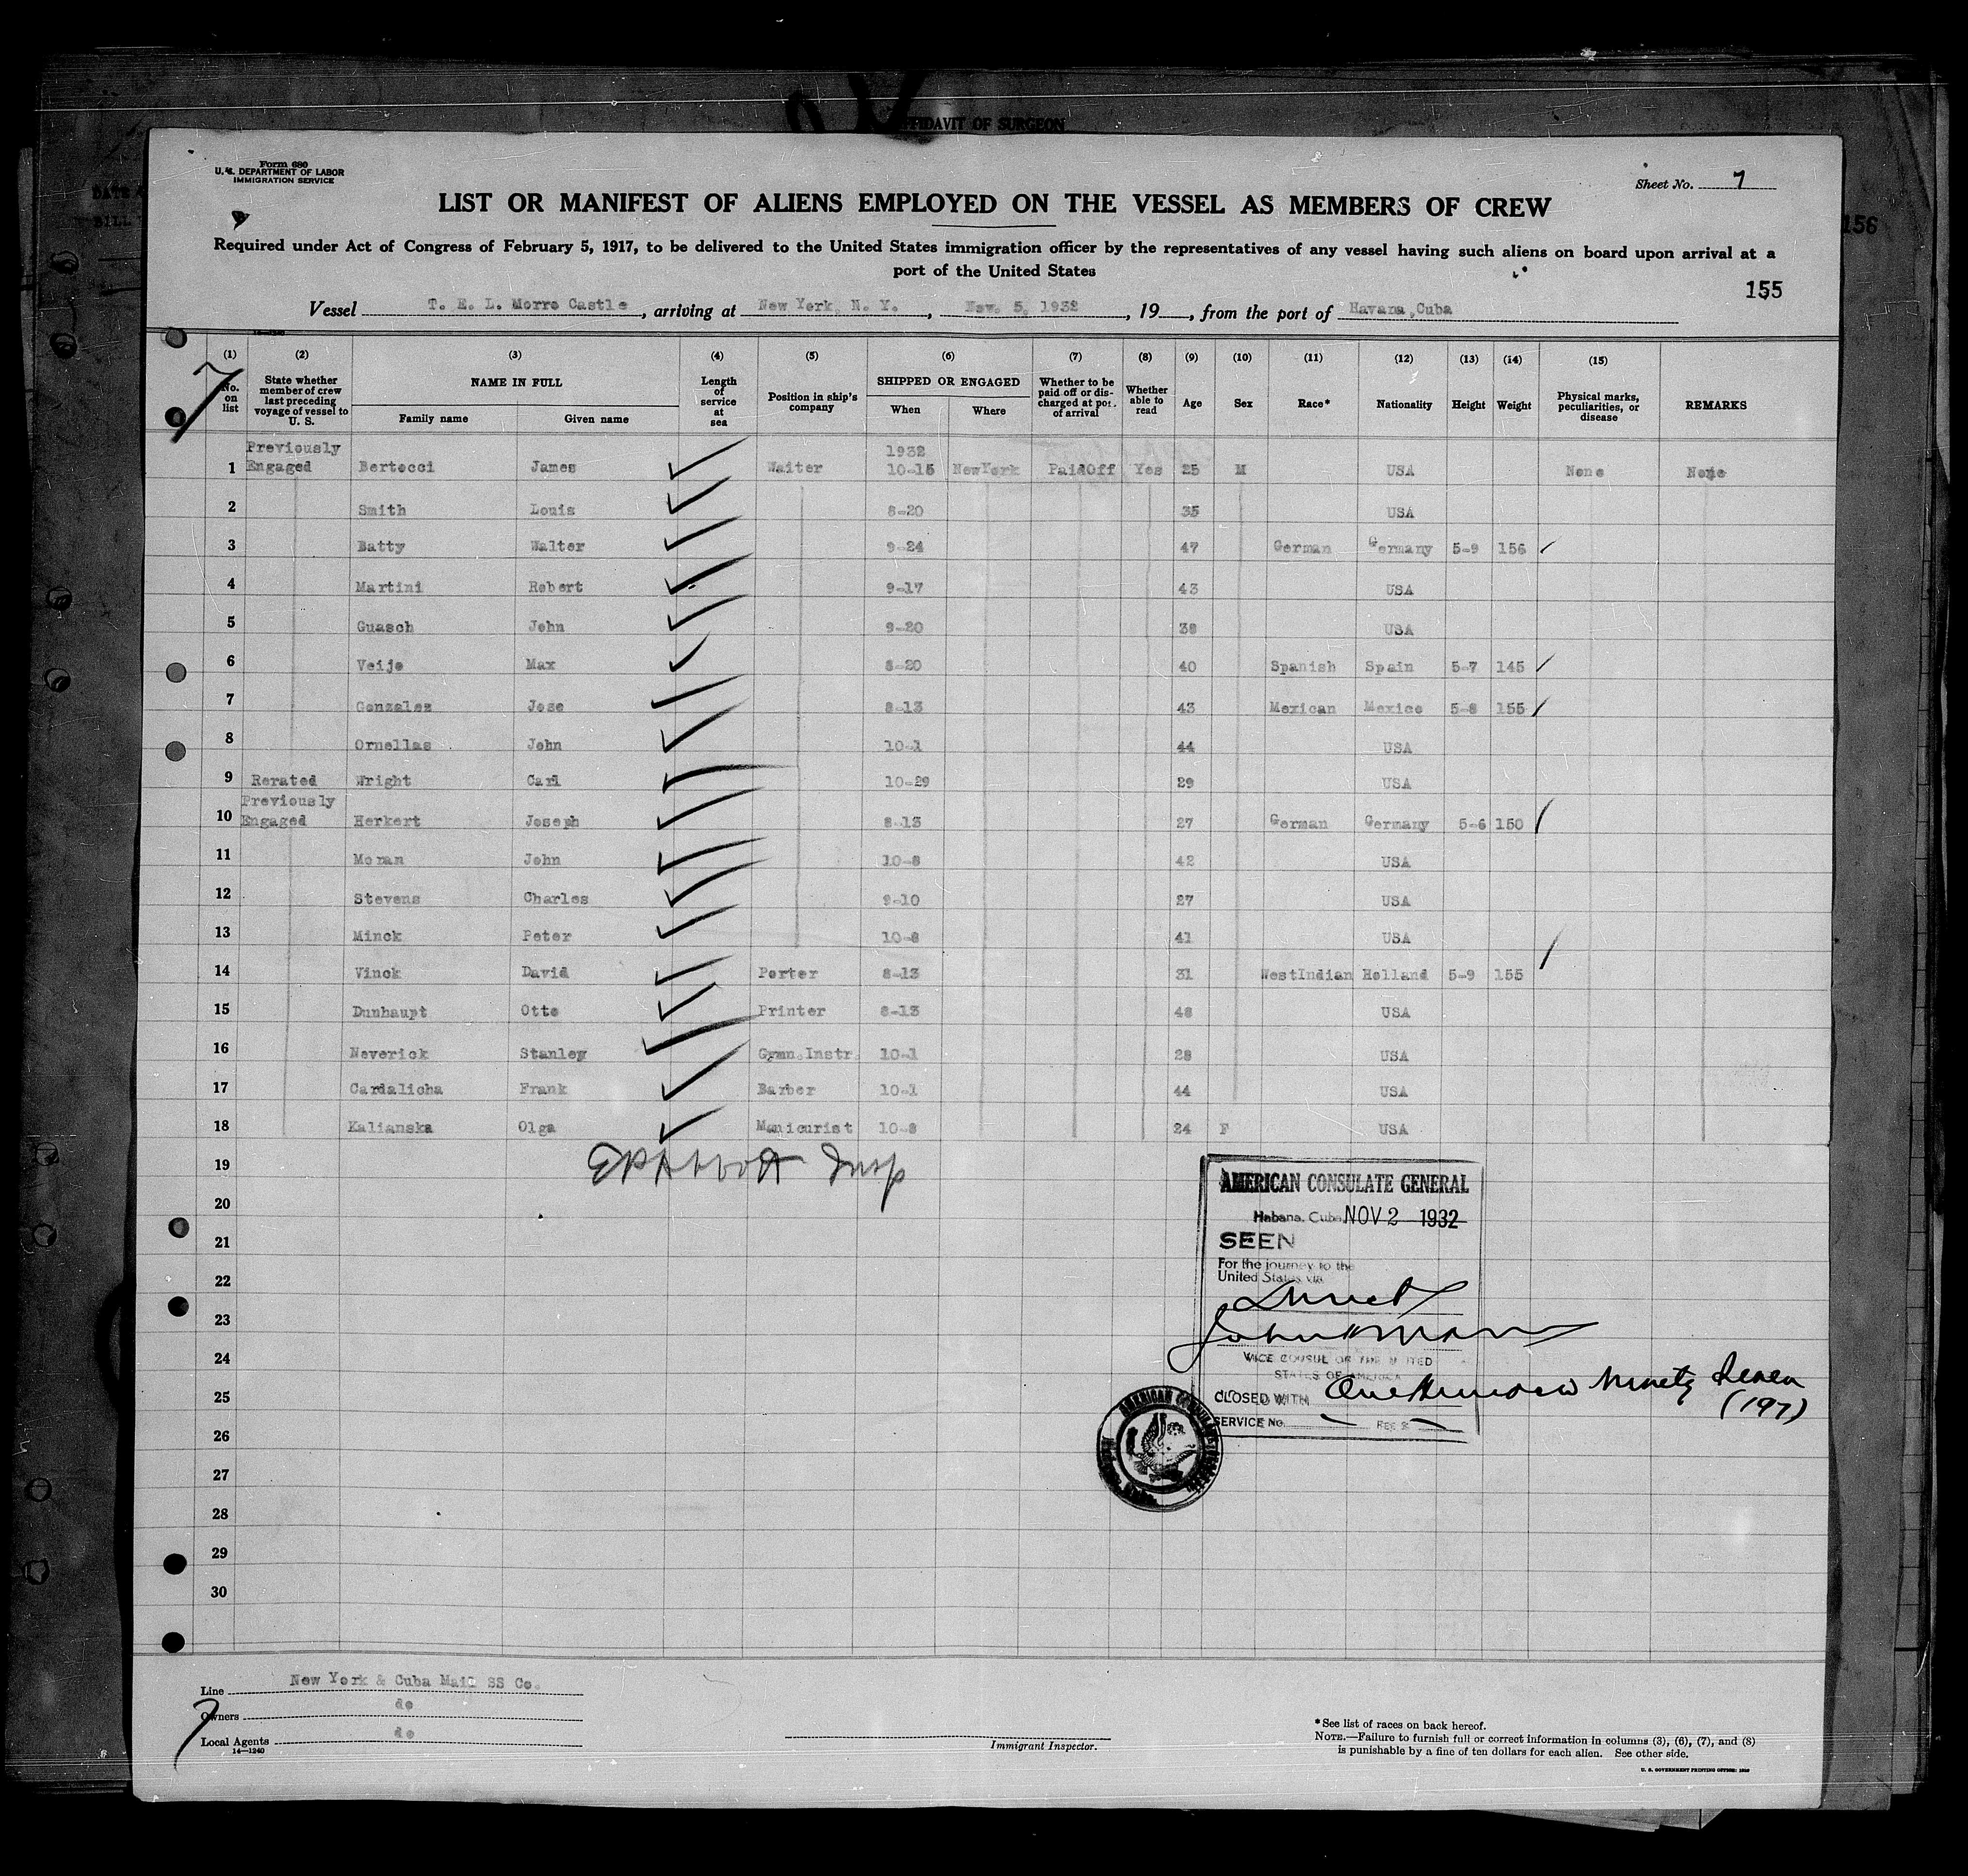 AFFIDAVIT OF SURGEON
Form 680
U. S. DEPARTMENT OF LABOR
IMMIGRATION SERVICE
Sheet No. 7
LIST OR MANIFEST OF ALIENS EMPLOYED ON THE VESSEL AS MEMBERS OF CREW
Required under Act of Congress of February 5, 1917, to be delivered to the United States immigration officer by the representatives of any vessel having such aliens on board upon arrival at a
port of the United States
156
155
Vessel T. E. L. Morro Castle, arriving at New York, N. Y., Nov. 5, 1932, 19, from the port of Havana, Cuba
14-1240
7
(1) (2) (3) (4) (5) (6) (7) (8) (9) (10) (11) (12) (13) (14) (15)
No. on list State whether member of crew last preceding voyage of vessel to U. S. NAME IN FULL Family name Given name Length of service at sea Position in ship's company SHIPPED OR ENGAGED When Where Whether to be paid off or discharged at port of arrival Whether able to read Age Sex Race* Nationality Height Weight Physical marks, peculiarities, or disease REMARKS
Previously 1932
1 Engaged Bertocci James Waiter 10-15 NewYork PaidOff Yes 25 M USA None None
2 Smith Louis 8-20 35 USA
3 Batty Walter 9-24 47 German Germany 5-9 156
4 Martini Robert 9-17 43 USA
5 Guasch John 9-20 38 USA
6 Veije Max 8-20 40 Spanish Spain 5-7 145
7 Gonzalez Jose 8-13 43 Mexican Mexico 5-8 155
8 Ornellas John 10-1 44 USA
9 Rerated Wright Carl 10-29 29 USA
Previously
10 Engaged Herkert Joseph 8-13 27 German Germany 5-6 150
11 Moran John 10-8 42 USA
12 Stevens Charles 9-10 27 USA
13 Minck Peter 10-8 41 USA
14 Vinck David Porter 8-13 31 WestIndian Holland 5-9 155
15 Dunhaupt Otto Printer 8-13 48 USA
16 Neverick Stanley Gymn.Instr. 10-1 28 USA
17 Cardalicha Frank Barber 10-1 44 USA
18 Kalianska Olga Manicurist 10-8 24 F USA
19
20
21
22
23
24
25
26
27
28
29
30
Insp
AMERICAN CONSULATE GENERAL
Habana, Cuba NOV 2 1932
SEEN
For the journey to the
United States via
Direct
VICE CONSUL OF THE UNITED
STATES OF AMERICA
CLOSED WITH One Hundred Ninety Seven
(197)
SERVICE No.
Line New York & Cuba Mail SS Co.
Owners do
Local Agents do
14-1240
7
Immigrant Inspector.
*See list of races on back hereof.
NOTE.—Failure to furnish full or correct information in columns (3), (6), (7), and (8)
is punishable by a fine of ten dollars for each alien. See other side.
U. S. GOVERNMENT PRINTING OFFICE: 1930